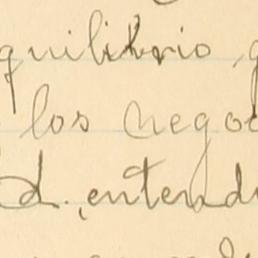 equilibrio, q
los nego
d. entend